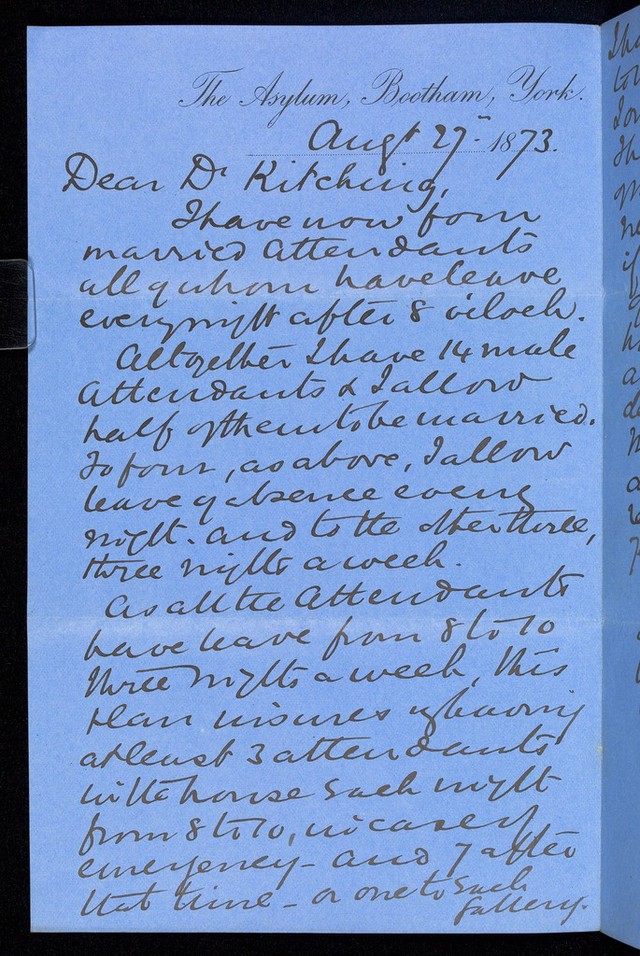 The Asylum, Bootham, York.
Augt 27th 1873.
Dear Dr Kitching,
I have now four
married attendants
all of whom have leave
every night after 8 o'clock.
Altogether I have 14 male
Attendants & I allow
half of them to be married.
To four, as above, I allow
leave of absence every
night - and to the other three,
three nights a week.
As all the Attendants
have leave from 8 to 10
three nights a week, this
plan insures my having
at least 3 attendants
in the house each night
from 8 to 10, in case of
emergency - and 7 after
that time - or one to each
gallery.